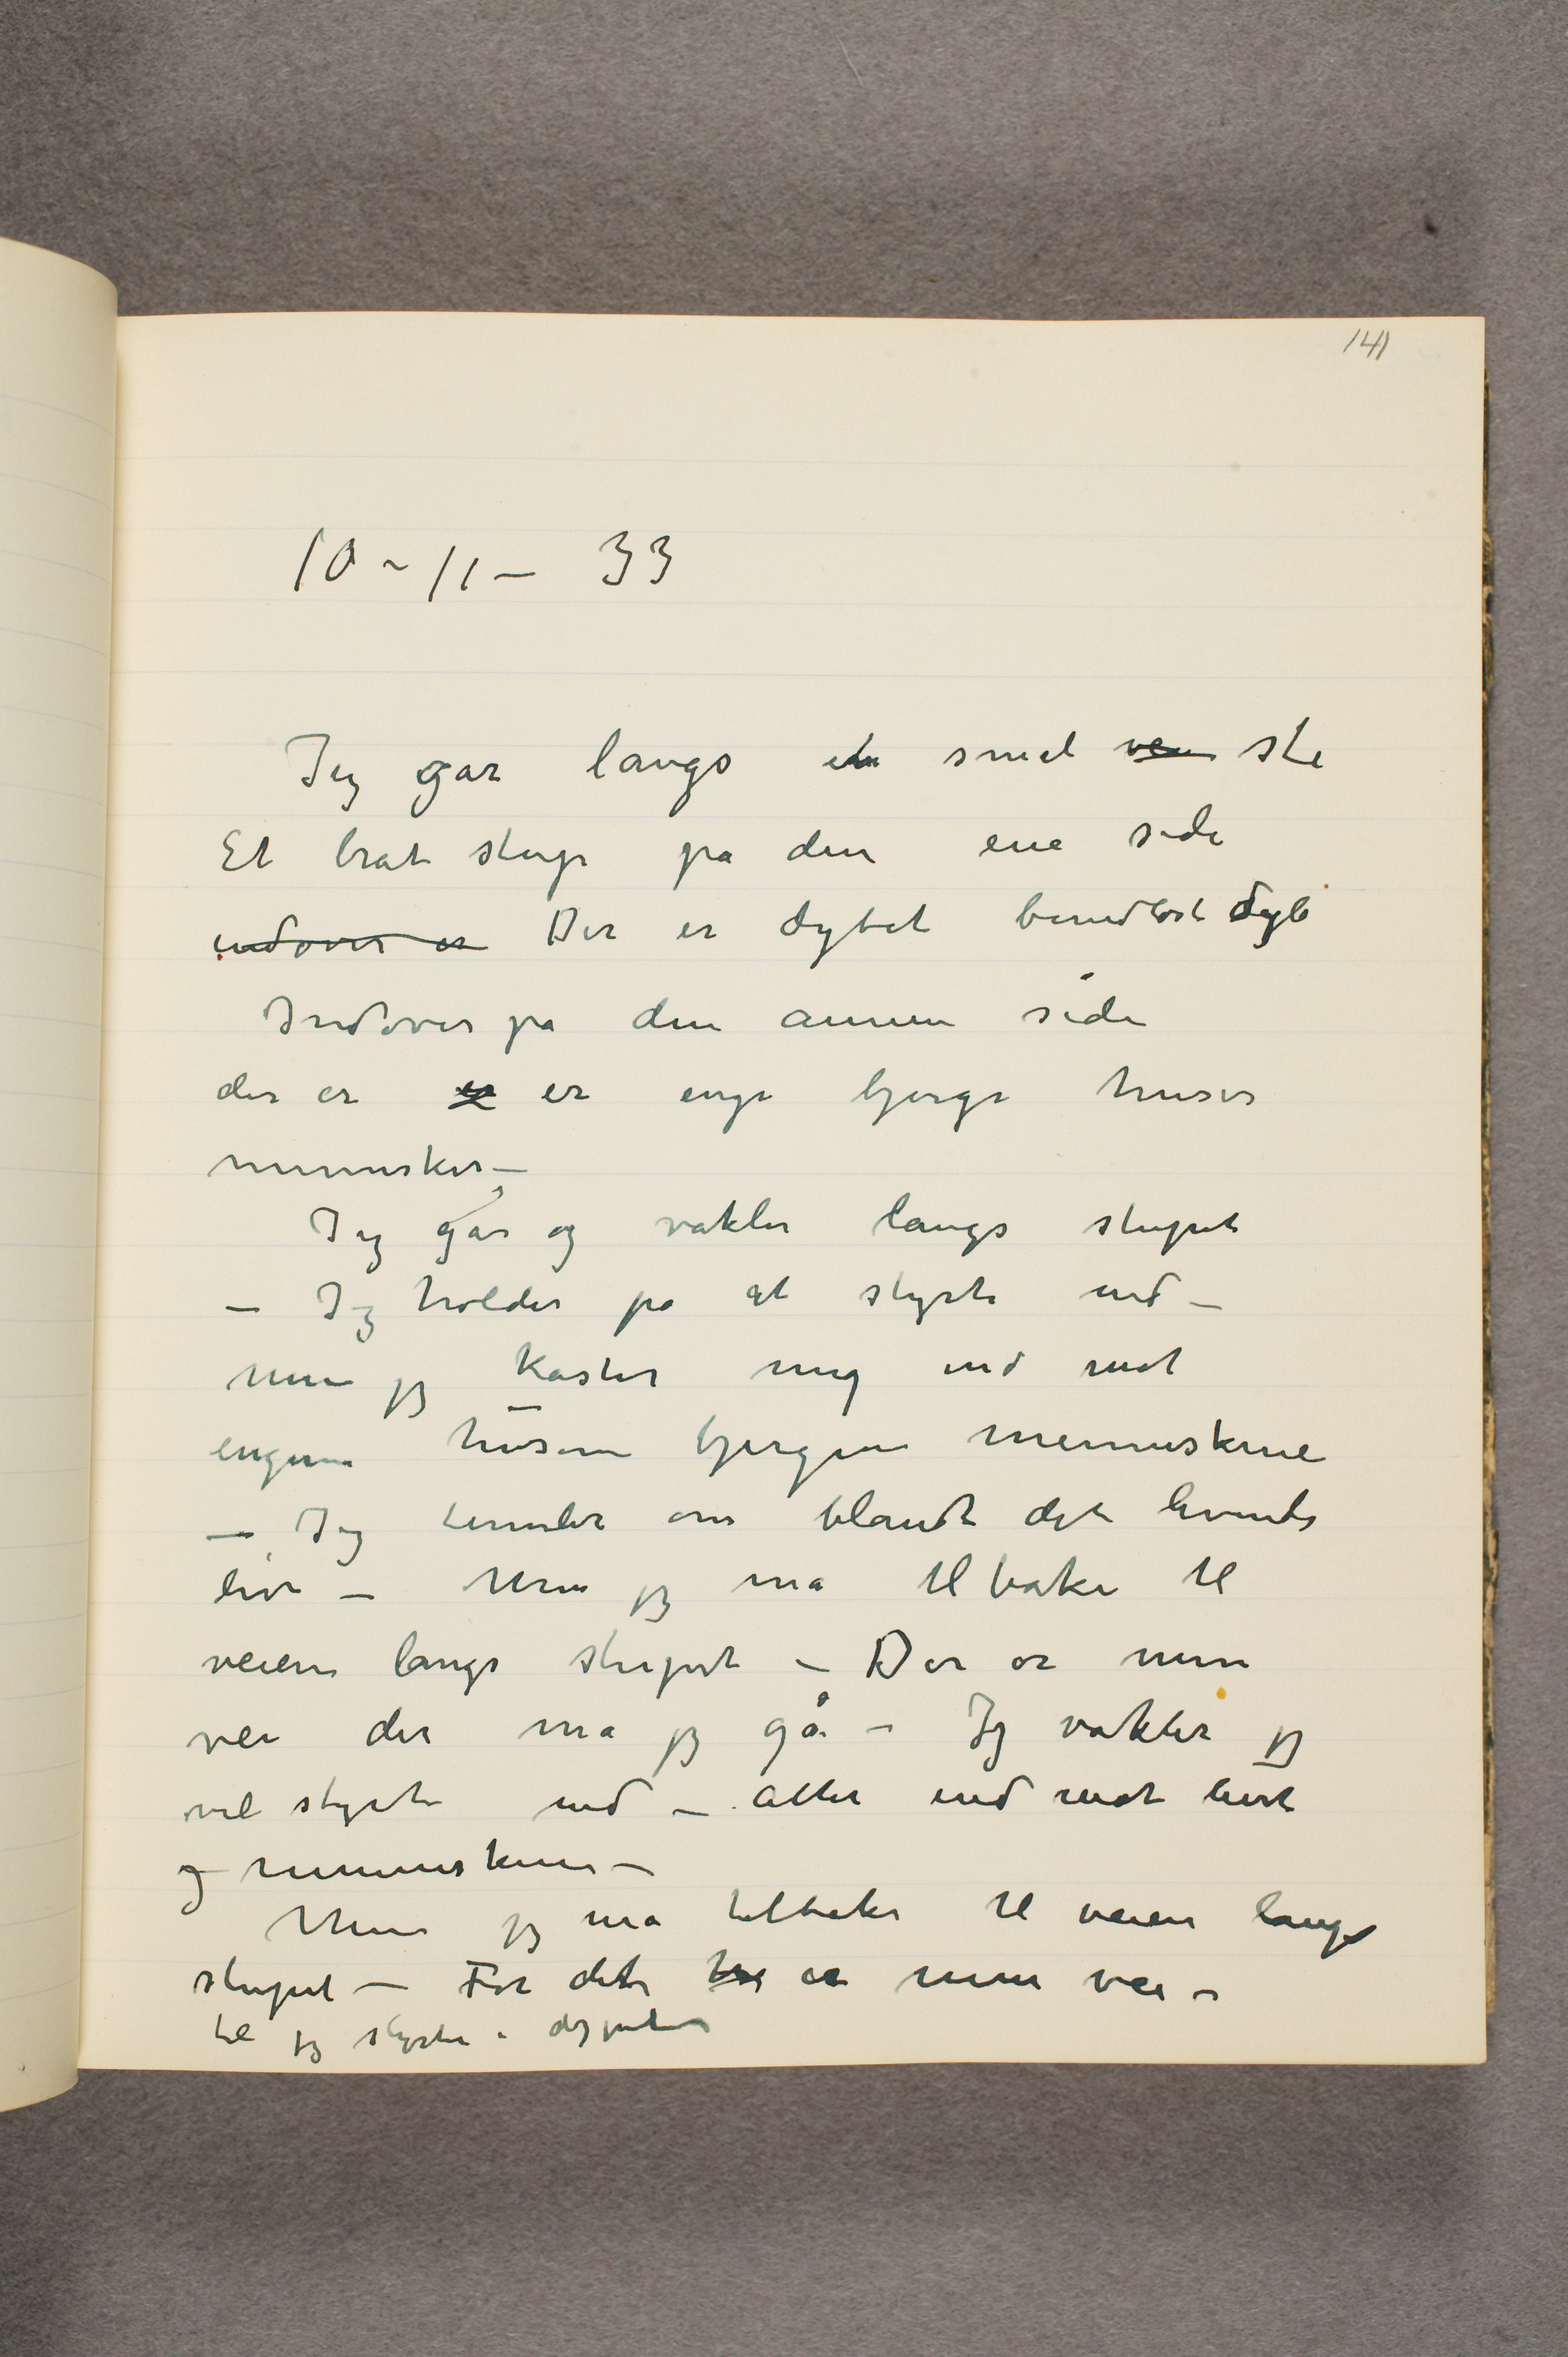 141
10-11- 33
Jeg går langs en smal vei sti
Et brat stup på den ene side
indover er Der er dybet bundløst dyb
Indover på den annen side
der er er er enge bjerge huser
mennesker –
Jeg går og vakler langs stupet
– Jeg holder på at styrte ned –
men jeg kaster mig ind mot
engene husene bjergene menneskene
– Jeg tumler om blandt det levende
liv – Men jeg må tilbake til
veien langs stupet – Der er min
vei der må jeg gå – Jeg vakler jeg
vil styrte ned – atter ind mot livet
og menneskene –
Men jeg må tilbake til veien langs
stupet – For det er min vei –
til jeg styrter i dypet